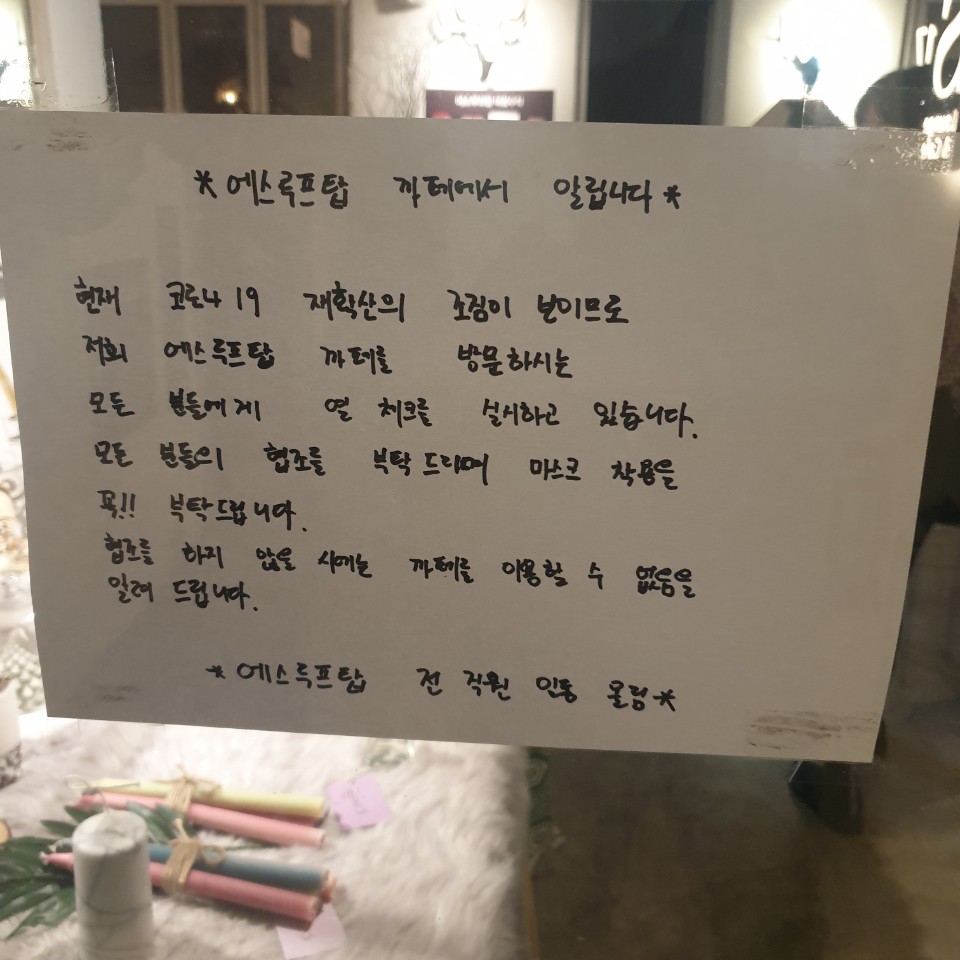 *에스루프탑 까페에서 알립니다*
현재 코로나 19 재확산의 조짐이 보이므로
저희 에스루프탑 까페를 방문하시는
모든 분들에게 열 체크를 실시하고 있습니다.
모든 분들의 협조를 부탁 드리며 마스크 착용을
꼭!! 부탁드립니다.
협조를 하지 않을 시에는 까페를 이용할 수 없음을
알려 드립니다.
*에스루프탑 전 직원 일동 올림*